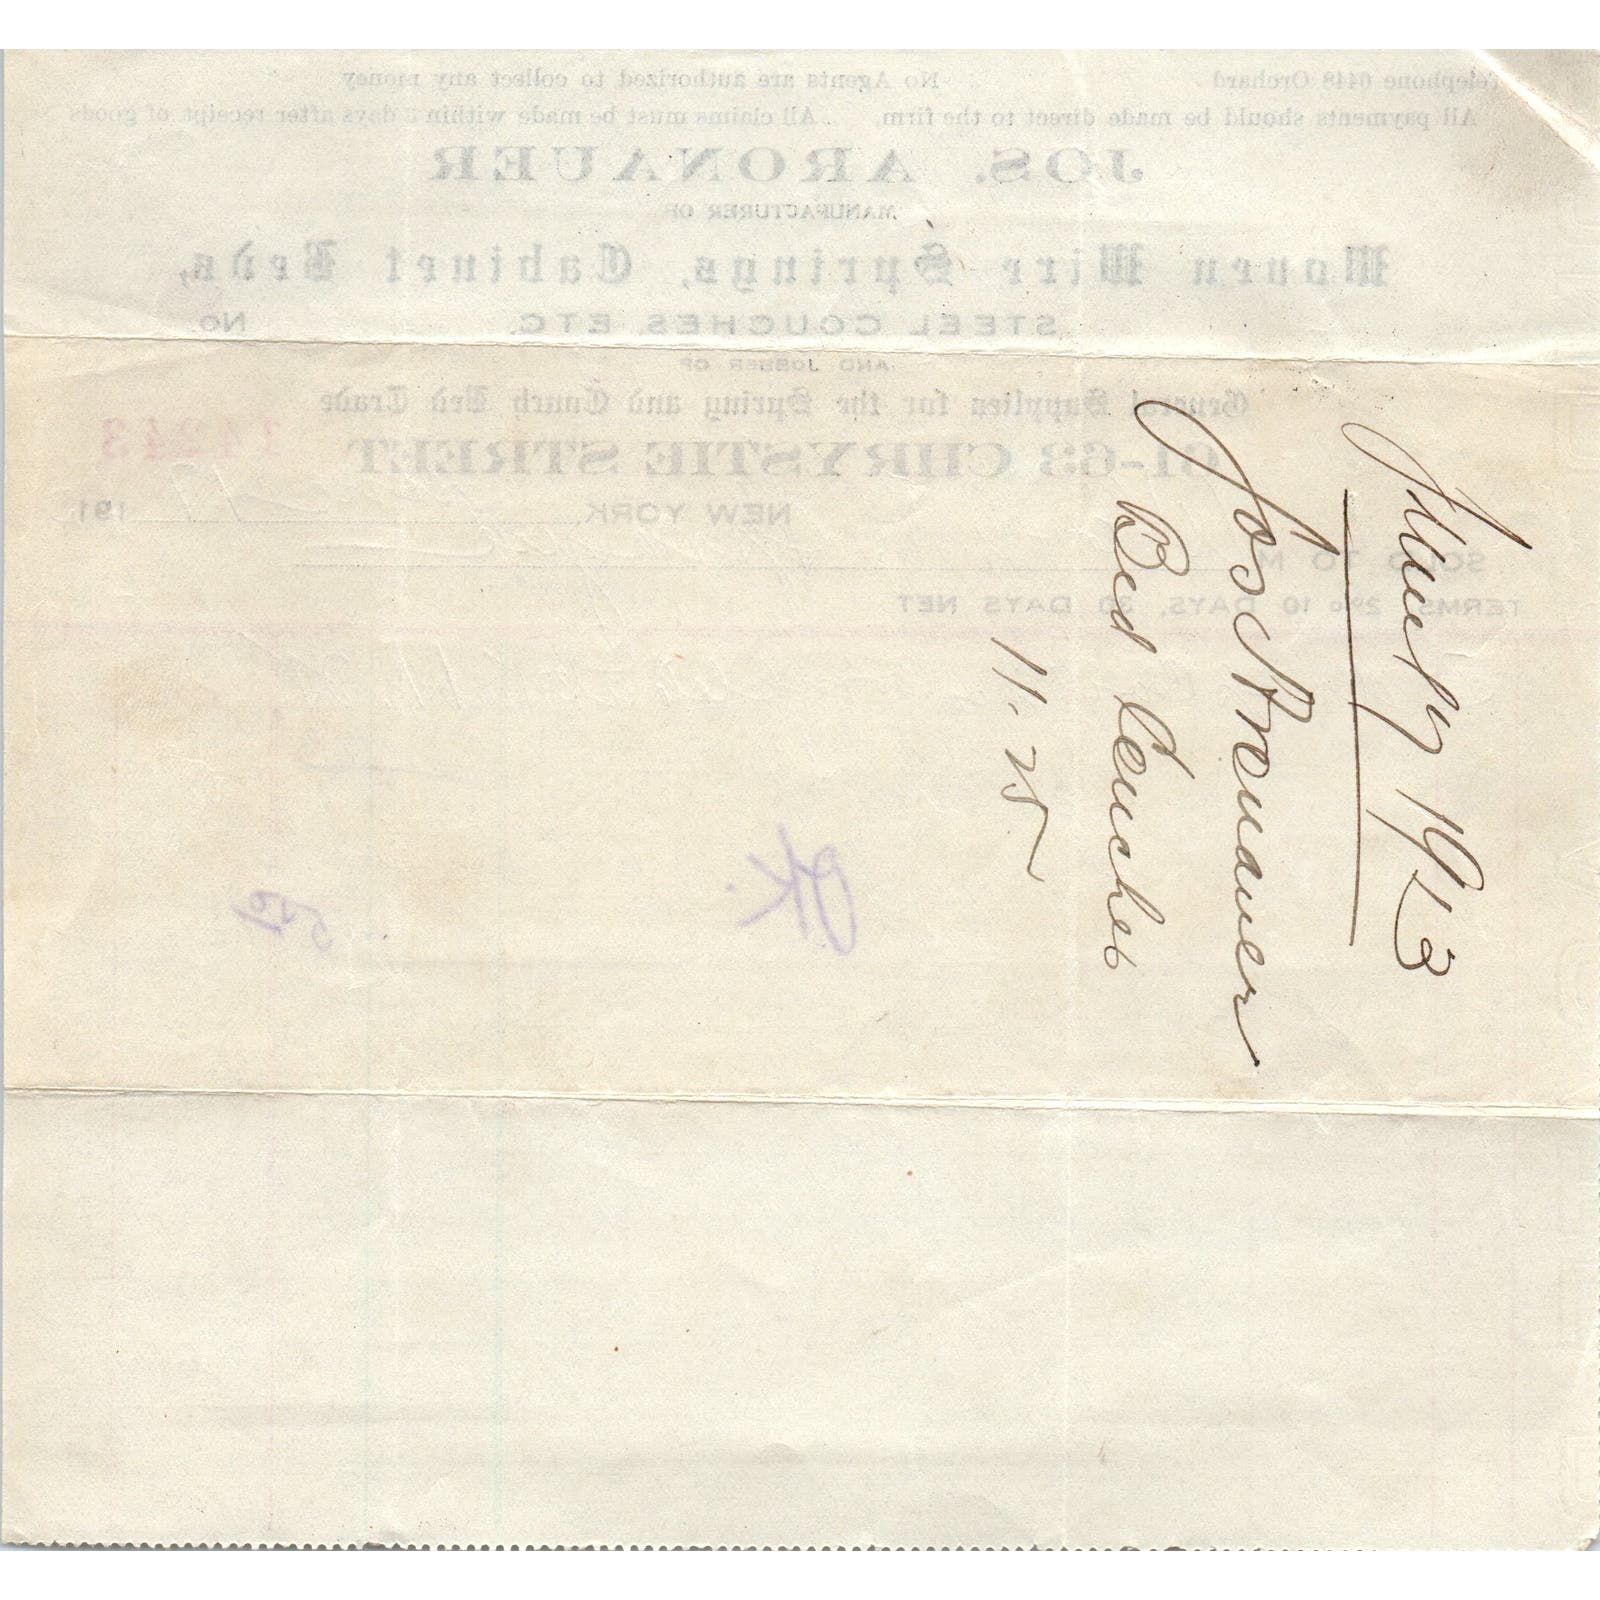 June 17 1913
Jos Aronauer
Bed Couches
11.25
Telephone 6448 Orchard
No Agents are authorized to collect any money
All payments should be made direct to the firm.
All claims must be made within days after receipt of goods
JOS. ARONAUER
MANUFACTURER OF
Woven Wire Springs, Cabinet Beds,
STEEL COUCHES, ETC.
No.
AND JOBBER OF
General Supplies for the Spring and Couch Bed Trade
14243
61-63 CHRYSTIE STREET
NEW YORK, 191
SOLD TO M
TERMS, 2% 10 DAYS, 30 DAYS NET
OK.